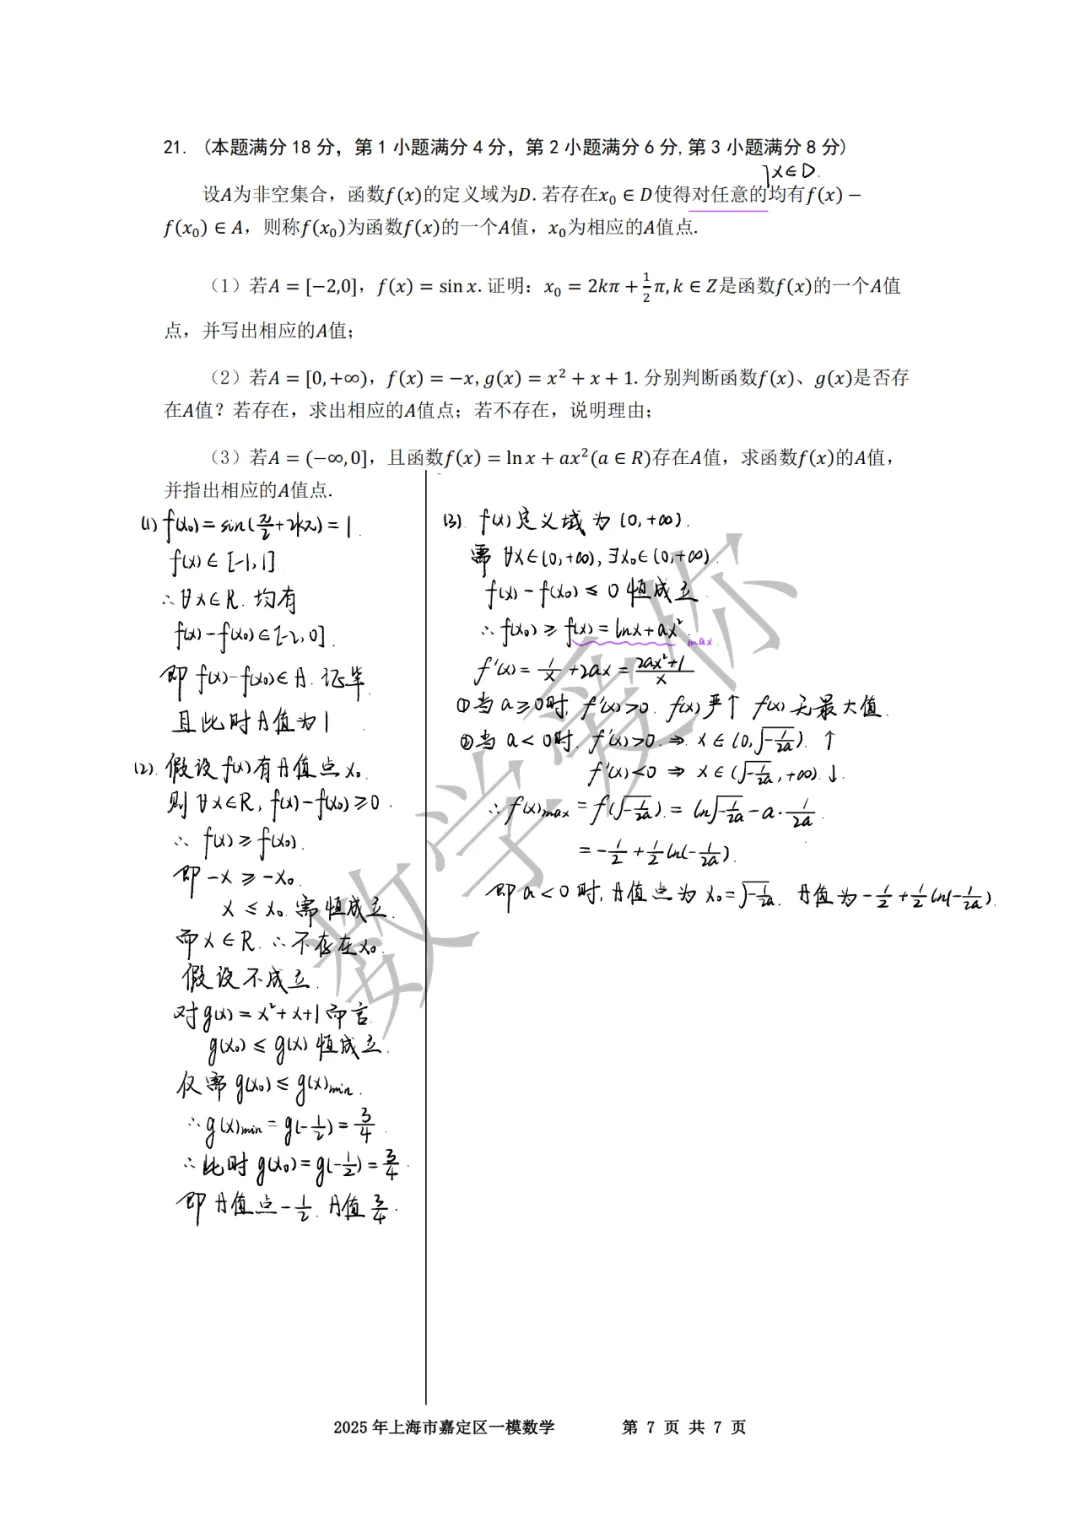 21. (本题满分 18 分，第 1 小题满分 4 分，第 2 小题满分 6 分, 第 3 小题满分 8 分)
x∈D.
设A为非空集合，函数f(x)的定义域为D. 若存在x₀ ∈ D使得对任意的均有f(x) −
f(x₀) ∈ A，则称f(x₀)为函数f(x)的一个A值，x₀为相应的A值点.
（1）若A = [−2,0]，f(x) = sin x. 证明：x₀ = 2kπ + 1/2 π, k ∈ Z是函数f(x)的一个A值
点，并写出相应的A值；
（2）若A = [0, +∞)，f(x) = −x, g(x) = x² + x + 1. 分别判断函数f(x)、g(x)是否存
在A值？若存在，求出相应的A值点；若不存在，说明理由；
（3）若A = (−∞, 0]，且函数f(x) = ln x + ax²(a ∈ R)存在A值，求函数f(x)的A值，
并指出相应的A值点.
(1) f(x₀) = sin(π/2 + 2kπ) = 1.
f(x) ∈ [-1,1]
∴ ∀x∈R. 均有
f(x) - f(x₀) ∈ [-2,0].
即 f(x) - f(x₀) ∈ A. 证毕
且此时A值为1
(2). 假设f(x)有A值点x₀.
则 ∀x∈R, f(x) - f(x₀) ≥ 0.
∴ f(x) ≥ f(x₀).
即 -x ≥ -x₀.
x ≤ x₀. 需恒成立.
而x∈R. ∴ 不存在x₀.
假设不成立.
对g(x) = x² + x + 1 而言.
g(x₀) ≤ g(x) 恒成立.
仅需 g(x₀) ≤ g(x)min.
∴ g(x)min = g(-1/2) = 3/4.
∴ 此时 g(x₀) = g(-1/2) = 3/4.
即 A值点 -1/2. A值 3/4.
(3). f(x)定义域为(0,+∞).
需 ∀x∈(0,+∞), ∃x₀∈(0,+∞).
f(x) - f(x₀) ≤ 0 恒成立.
∴ f(x₀) ≥ f(x) = lnx + ax² max.
f'(x) = 1/x + 2ax = (2ax²+1)/x
①当 a≥0时, f'(x)>0. f(x)严↑ f(x)无最大值.
②当 a<0时. f'(x)>0. ⇒ x∈(0, √(-1/2a)). ↑
f'(x)<0 ⇒ x∈(√(-1/2a), +∞). ↓.
∴ f(x)max = f(√(-1/2a)) = ln√(-1/2a) - a·1/2a
= -1/2 + 1/2 ln(-1/2a).
即 a<0时, A值点为 x₀ = √(-1/2a). A值为 -1/2 + 1/2 ln(-1/2a).
数学爱你
2025 年上海市嘉定区一模数学 第 7 页 共 7 页